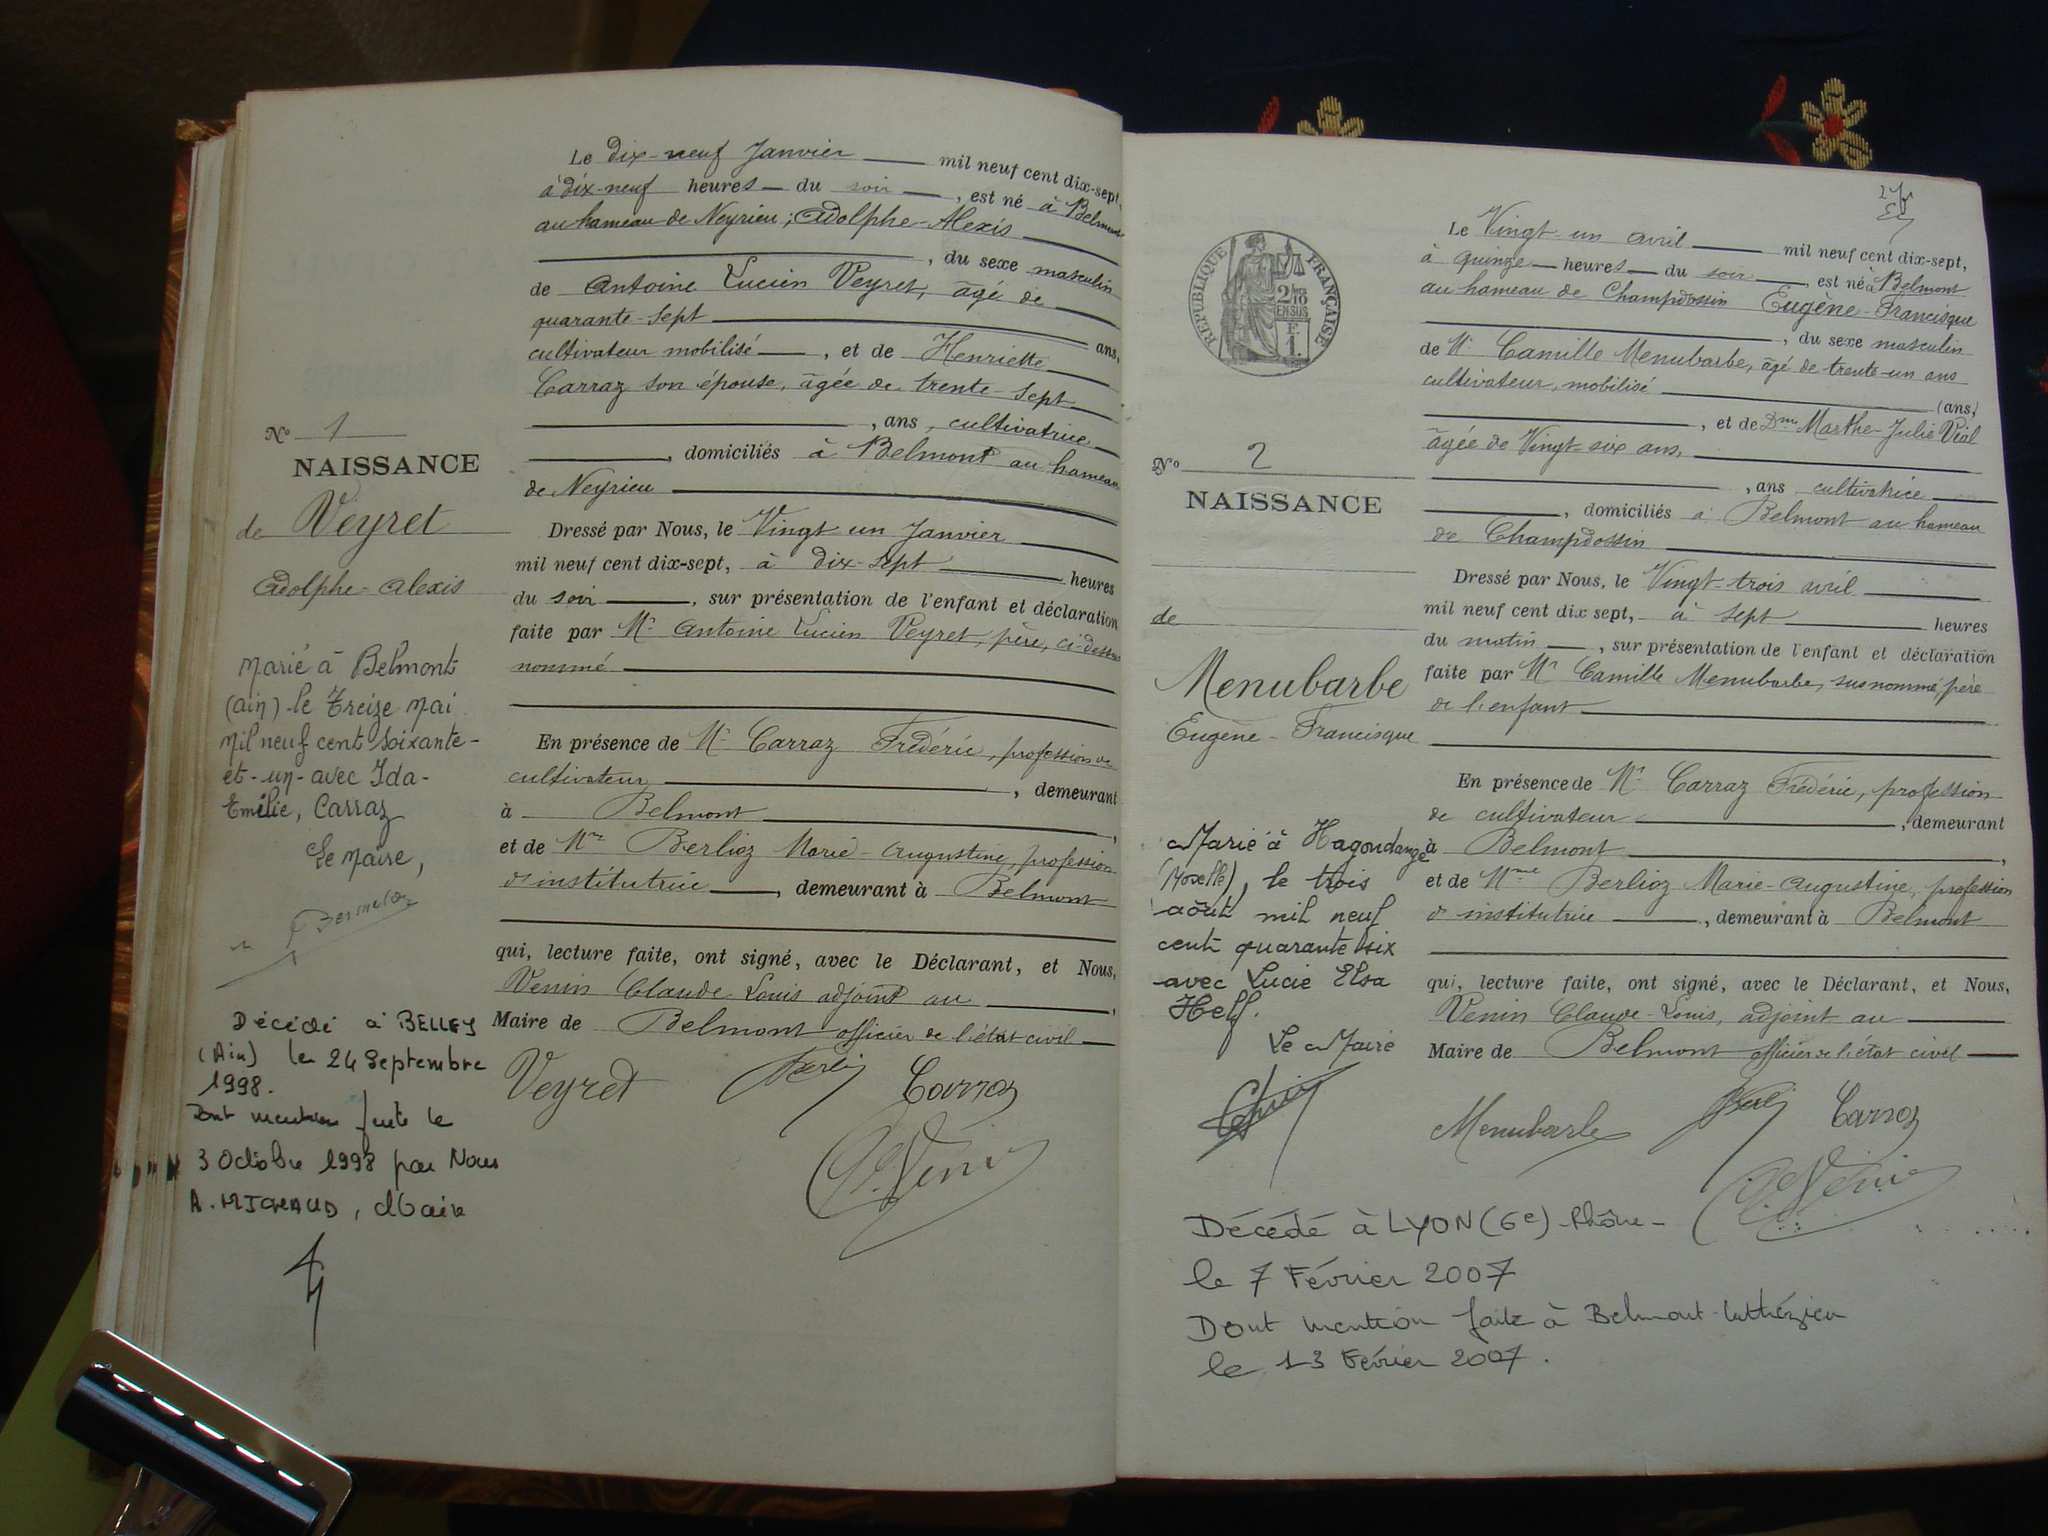 Le dix-neuf Janvier mil neuf cent dix-sept,
à dix-neuf heures du soir, est né à Belmont
au hameau de Neyrieu; Adolphe-Alexis
, du sexe masculin
de Antoine Lucien Veyret, âgé de
quarante-sept
ans,
cultivateur mobilisé, et de Henriette
Carraz son épouse, âgée de trente-sept
, ans, cultivatrice
, domiciliés à Belmont au hameau
de Neyrieu
Nº 1
NAISSANCE
de Veyret
Adolphe-Alexis
Dressé par Nous, le Vingt un Janvier
mil neuf cent dix-sept, à dix-sept heures
du soir, sur présentation de l'enfant et déclaration
faite par Mr Antoine Lucien Veyret, père, ci-dessus
nommé
En présence de Mr Carraz Frédéric, profession de
cultivateur, demeurant
à Belmont,
et de Mme Berlioz Marie-Augustine, profession
d'institutrice, demeurant à Belmont
qui, lecture faite, ont signé, avec le Déclarant, et Nous,
Venin Claude-Louis adjoint au,
Maire de Belmont officier de l'état civil
Veyret Carraz
C. Venin
Marié à Belmont
(Ain) le Treize Mai
Mil neuf cent soixante-
et-un-avec Ida-
Emélie, Carraz
Le Maire,
Décédé à BELLEY
(Ain) le 24 Septembre
1998.
Dont mention faite le
3 Octobre 1998 par Nous
A. MICHAUD, Maire
RÉPUBLIQUE FRANÇAISE
2/10
EN SUS
F.
1.
Le Vingt-un avril mil neuf cent dix-sept,
à quinze heures du soir, est né à Belmont
au hameau de Champdossin Eugène-Francisque
, du sexe masculin
de Mr Camille Menubarbe, âgé de trente-un ans
cultivateur, mobilisé
(ans,)
, et de Dme Marthe-Julie Vial
âgée de Vingt-six ans,
, ans cultivatrice
, domiciliés à Belmont au hameau
de Champdossin
Nº 2
NAISSANCE
de
Menubarbe
Eugène-Francisque
Dressé par Nous, le Vingt-trois avril
mil neuf cent dix sept, à sept heures
du matin, sur présentation de l'enfant et déclaration
faite par Mr Camille Menubarbe, susnommé, père
de l'enfant
En présence de Mr Carraz Frédéric, profession
de cultivateur, demeurant
à Belmont,
et de Mme Berlioz Marie-Augustine, profession
d'institutrice, demeurant à Belmont
qui, lecture faite, ont signé, avec le Déclarant, et Nous,
Venin Claude-Louis, adjoint au
Maire de Belmont officier de l'état civil
Menubarbe Carraz
C. Venin
Marié à Hagondange
(Moselle), le trois
août mil neuf
cent quarante six
avec Lucie Elsa
Helf.
Le Maire
Décédé à LYON (6e) -Rhône-
le 7 Février 2007
Dont mention faite à Belmont-Luthézieu
le 13 Février 2007.